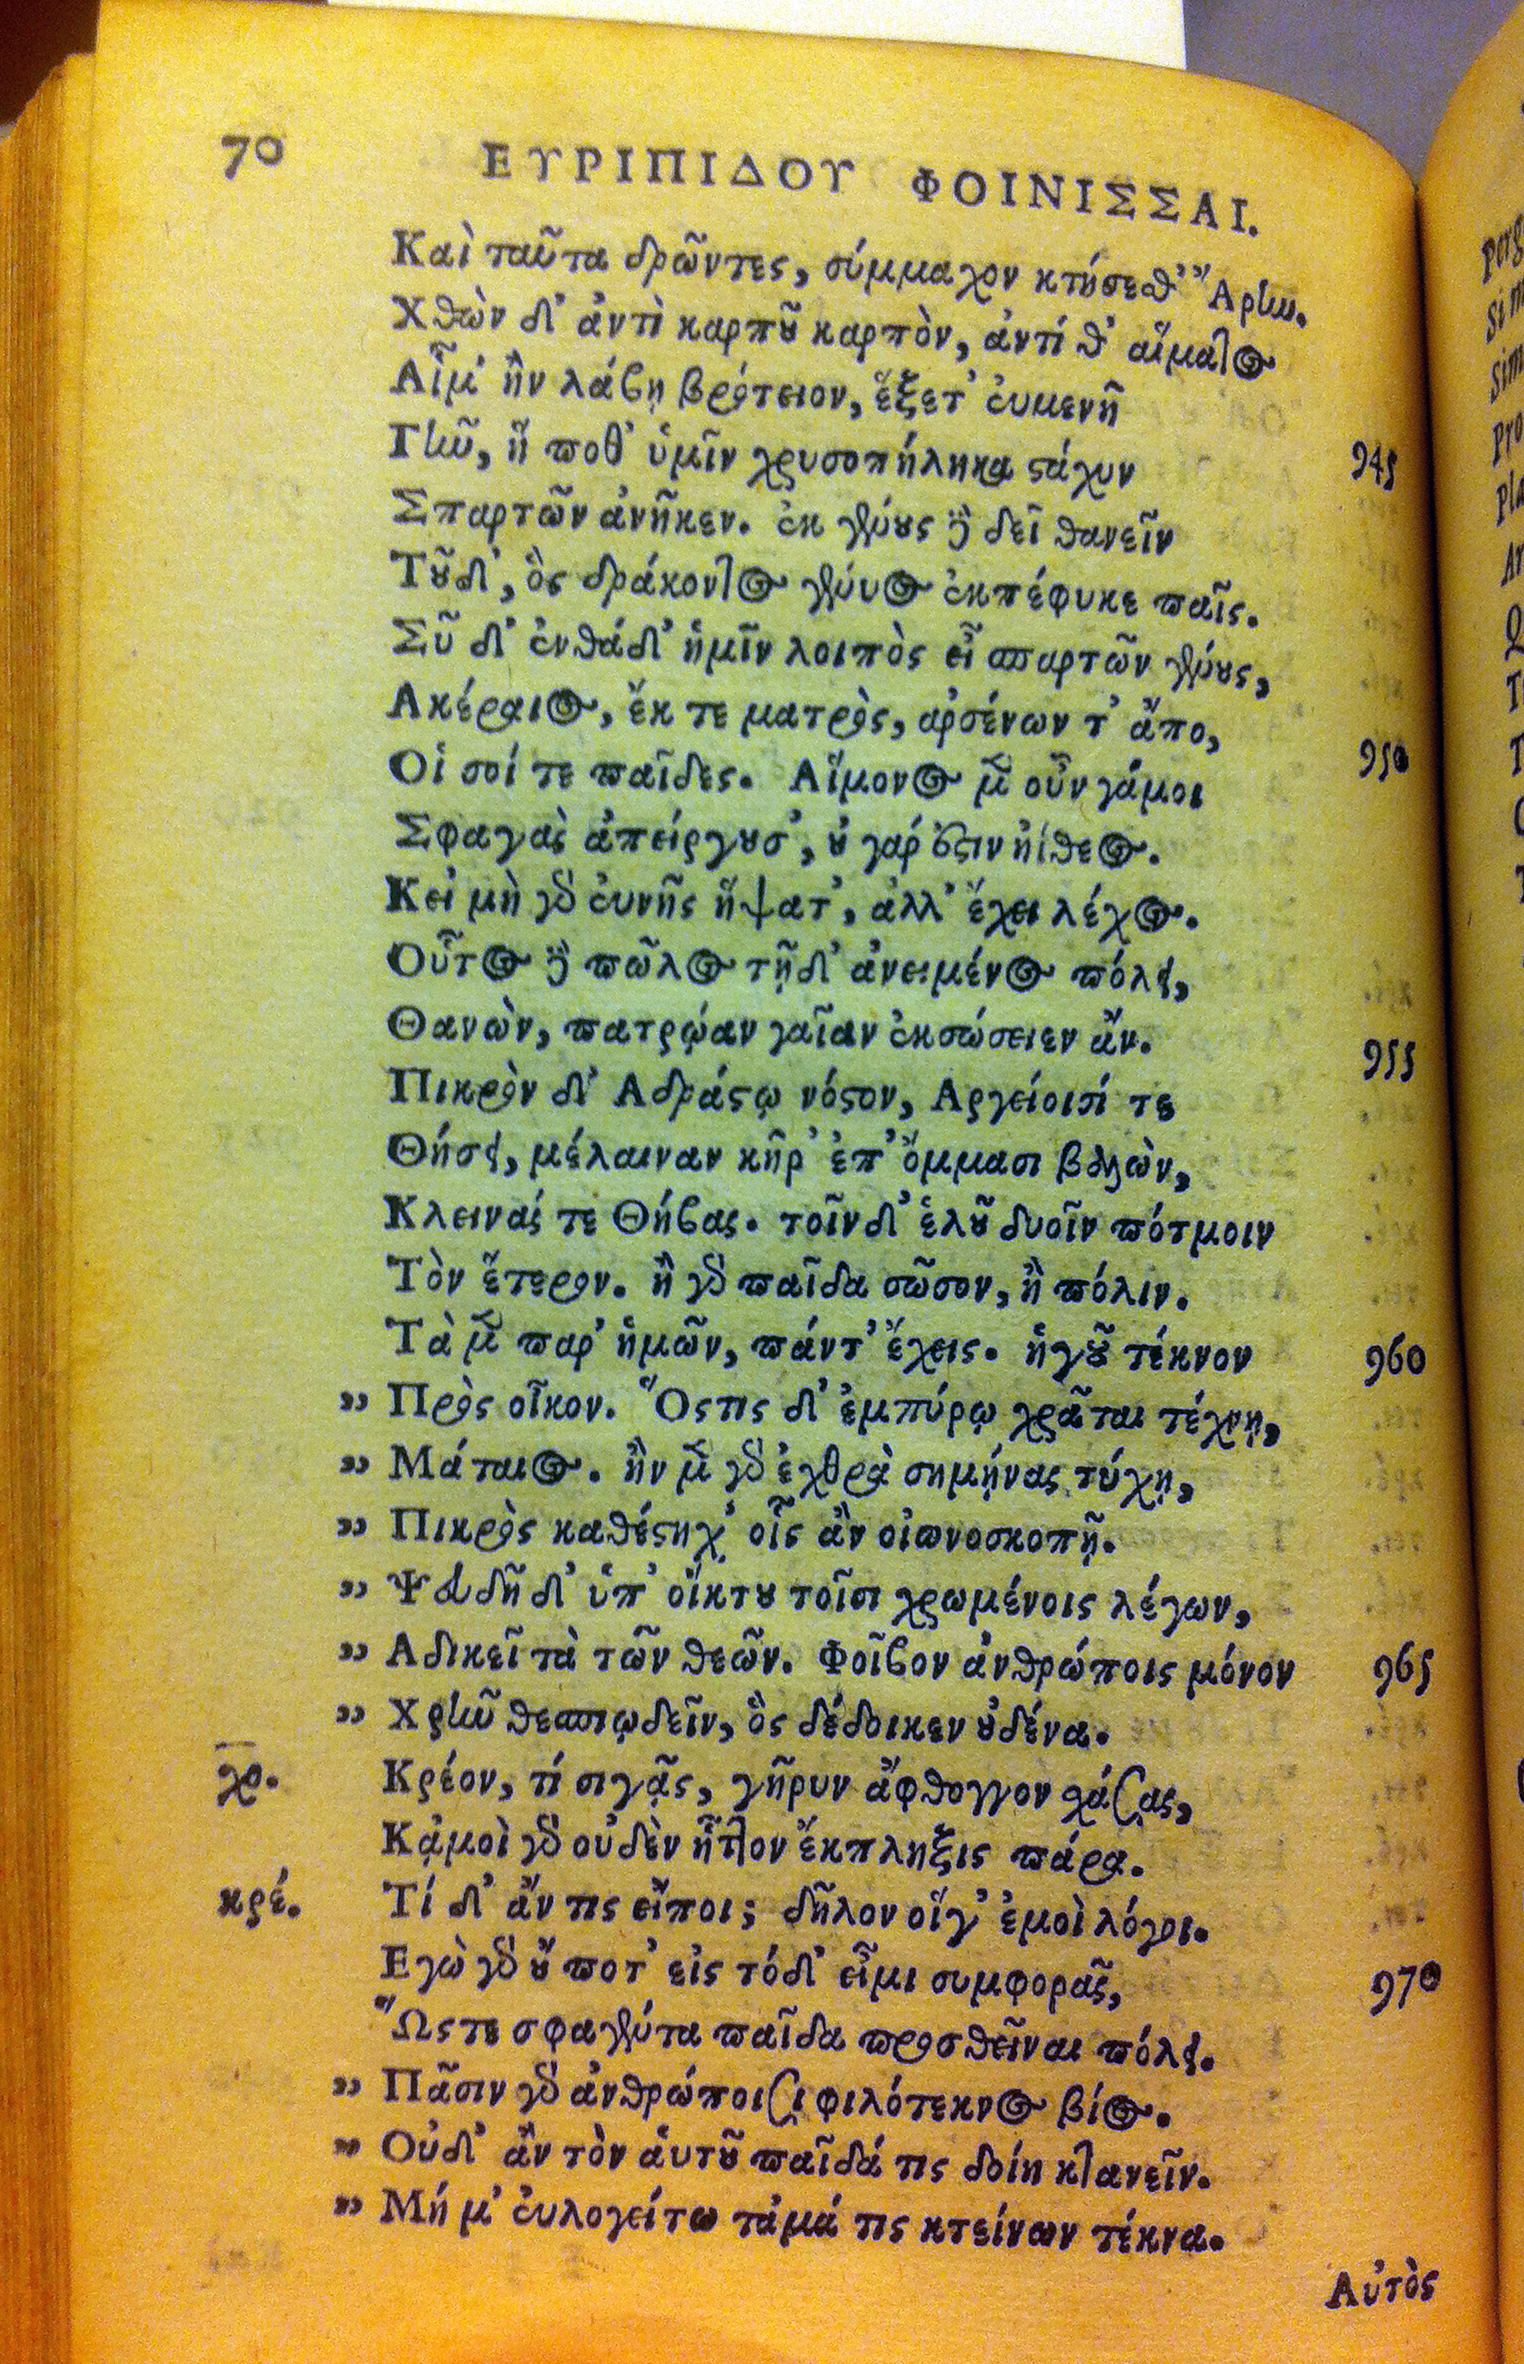 70 ΕΥΡΙΠΙΔΟΥ ΦΟΙΝΙΣΣΑΙ.
Καὶ ταῦτα δρῶντες, σύμμαχον κτήσεθ' Ἄρην.
Χθὼν δ' ἀντὶ καρποῦ καρπὸν, ἀντί θ' αἵματος
Αἷμ' ἢν λάβῃ βρότειον, ἕξετ' εὐμενῆ
Γῆν, ἥ ποθ' ὑμῖν χρυσοπήληκα στάχυν 945
Σπαρτῶν ἀνῆκεν. ἐκ γένους δὲ δεῖ θανεῖν
Τοῦδ', ὃς δράκοντος γένυος ἐκπέφυκε παῖς.
Σῦ δ' ἐνθάδ' ἡμῖν λοιπὸς εἶ σπαρτῶν γένους,
Ακέραιος, ἔκ τε ματρὸς, αῤσένων τ' ἄπο,
Οἱ σοί τε παῖδες. Αἵμονος μὲν οὖν γάμοι 950
Σφαγὰς ἀπείργουσ', οὐ γάρ ἐστιν ἠίθεος.
Κεἰ μὴ γὰρ εὐνῆς ἥψατ', ἀλλ' ἔχει λέχος.
Οὗτος δὲ πῶλος τῇδ' ἀνειμένος πόλει,
Θανὼν, πατρῴαν γαῖαν ἐκσώσειεν ἄν.
Πικρὸν δ' Αδράστῳ νόστον, Αργείοισί τε 955
Θήσει, μέλαιναν κῆρ' ἐπ' ὄμμασι βαλὼν,
Κλεινάς τε Θήβας. τοῖνδ' ἑλοῦ δυοῖν πότμοιν
Τὸν ἕτερον. ἢ γὰρ παῖδα σῶσον, ἢ πόλιν.
Τὰ μὲν παρ' ἡμῶν, πάντ' ἔχεις. ἡγοῦ τέκνον 960
" Πρὸς οἶκον. Ὅστις δ' ἐμπύρῳ χρᾶται τέχνῃ,
" Μάταιος. ἢν μὲν γὰρ ἐχθρὰ σημῄνας τύχῃ,
" Πικρὸς καθέστηχ' οἷς ἂν οἰωνοσκοπῇ.
" Ψευδῆ δ' ὑπ' οἴκτου τοῖσι χρωμένοις λέγων,
" Αδικεῖ τὰ τῶν θεῶν. Φοῖβον ἀνθρώποις μόνον 965
" Χρῆν θεσπιῳδεῖν, ὃς δέδοικεν οὐδένα.
χο. Κρέον, τί σιγᾷς, γῆρυν ἄφθογγον χάσας,
Κᾀμοὶ γὰρ οὐδὲν ἧττον ἔκπληξις πάρα.
κρέ. Τί δ' ἄν τις εἴποι; δῆλον οἵγ' ἐμοὶ λόγοι.
Εγὼ γὰρ οὔ ποτ' εἰς τόδ' εἶμι συμφορᾶς, 970
Ὥστε σφαγέντα παῖδα προσθεῖναι πόλει.
" Πᾶσιν γὰρ ἀνθρώποισι φιλότεκνος βίος.
" Οὐδ' ἂν τὸν ἁυτοῦ παῖδά τις δοίη κτανεῖν.
" Μή μ' εὐλογείτω τἀμά τις κτείνων τέκνα.
Αὐτὸς